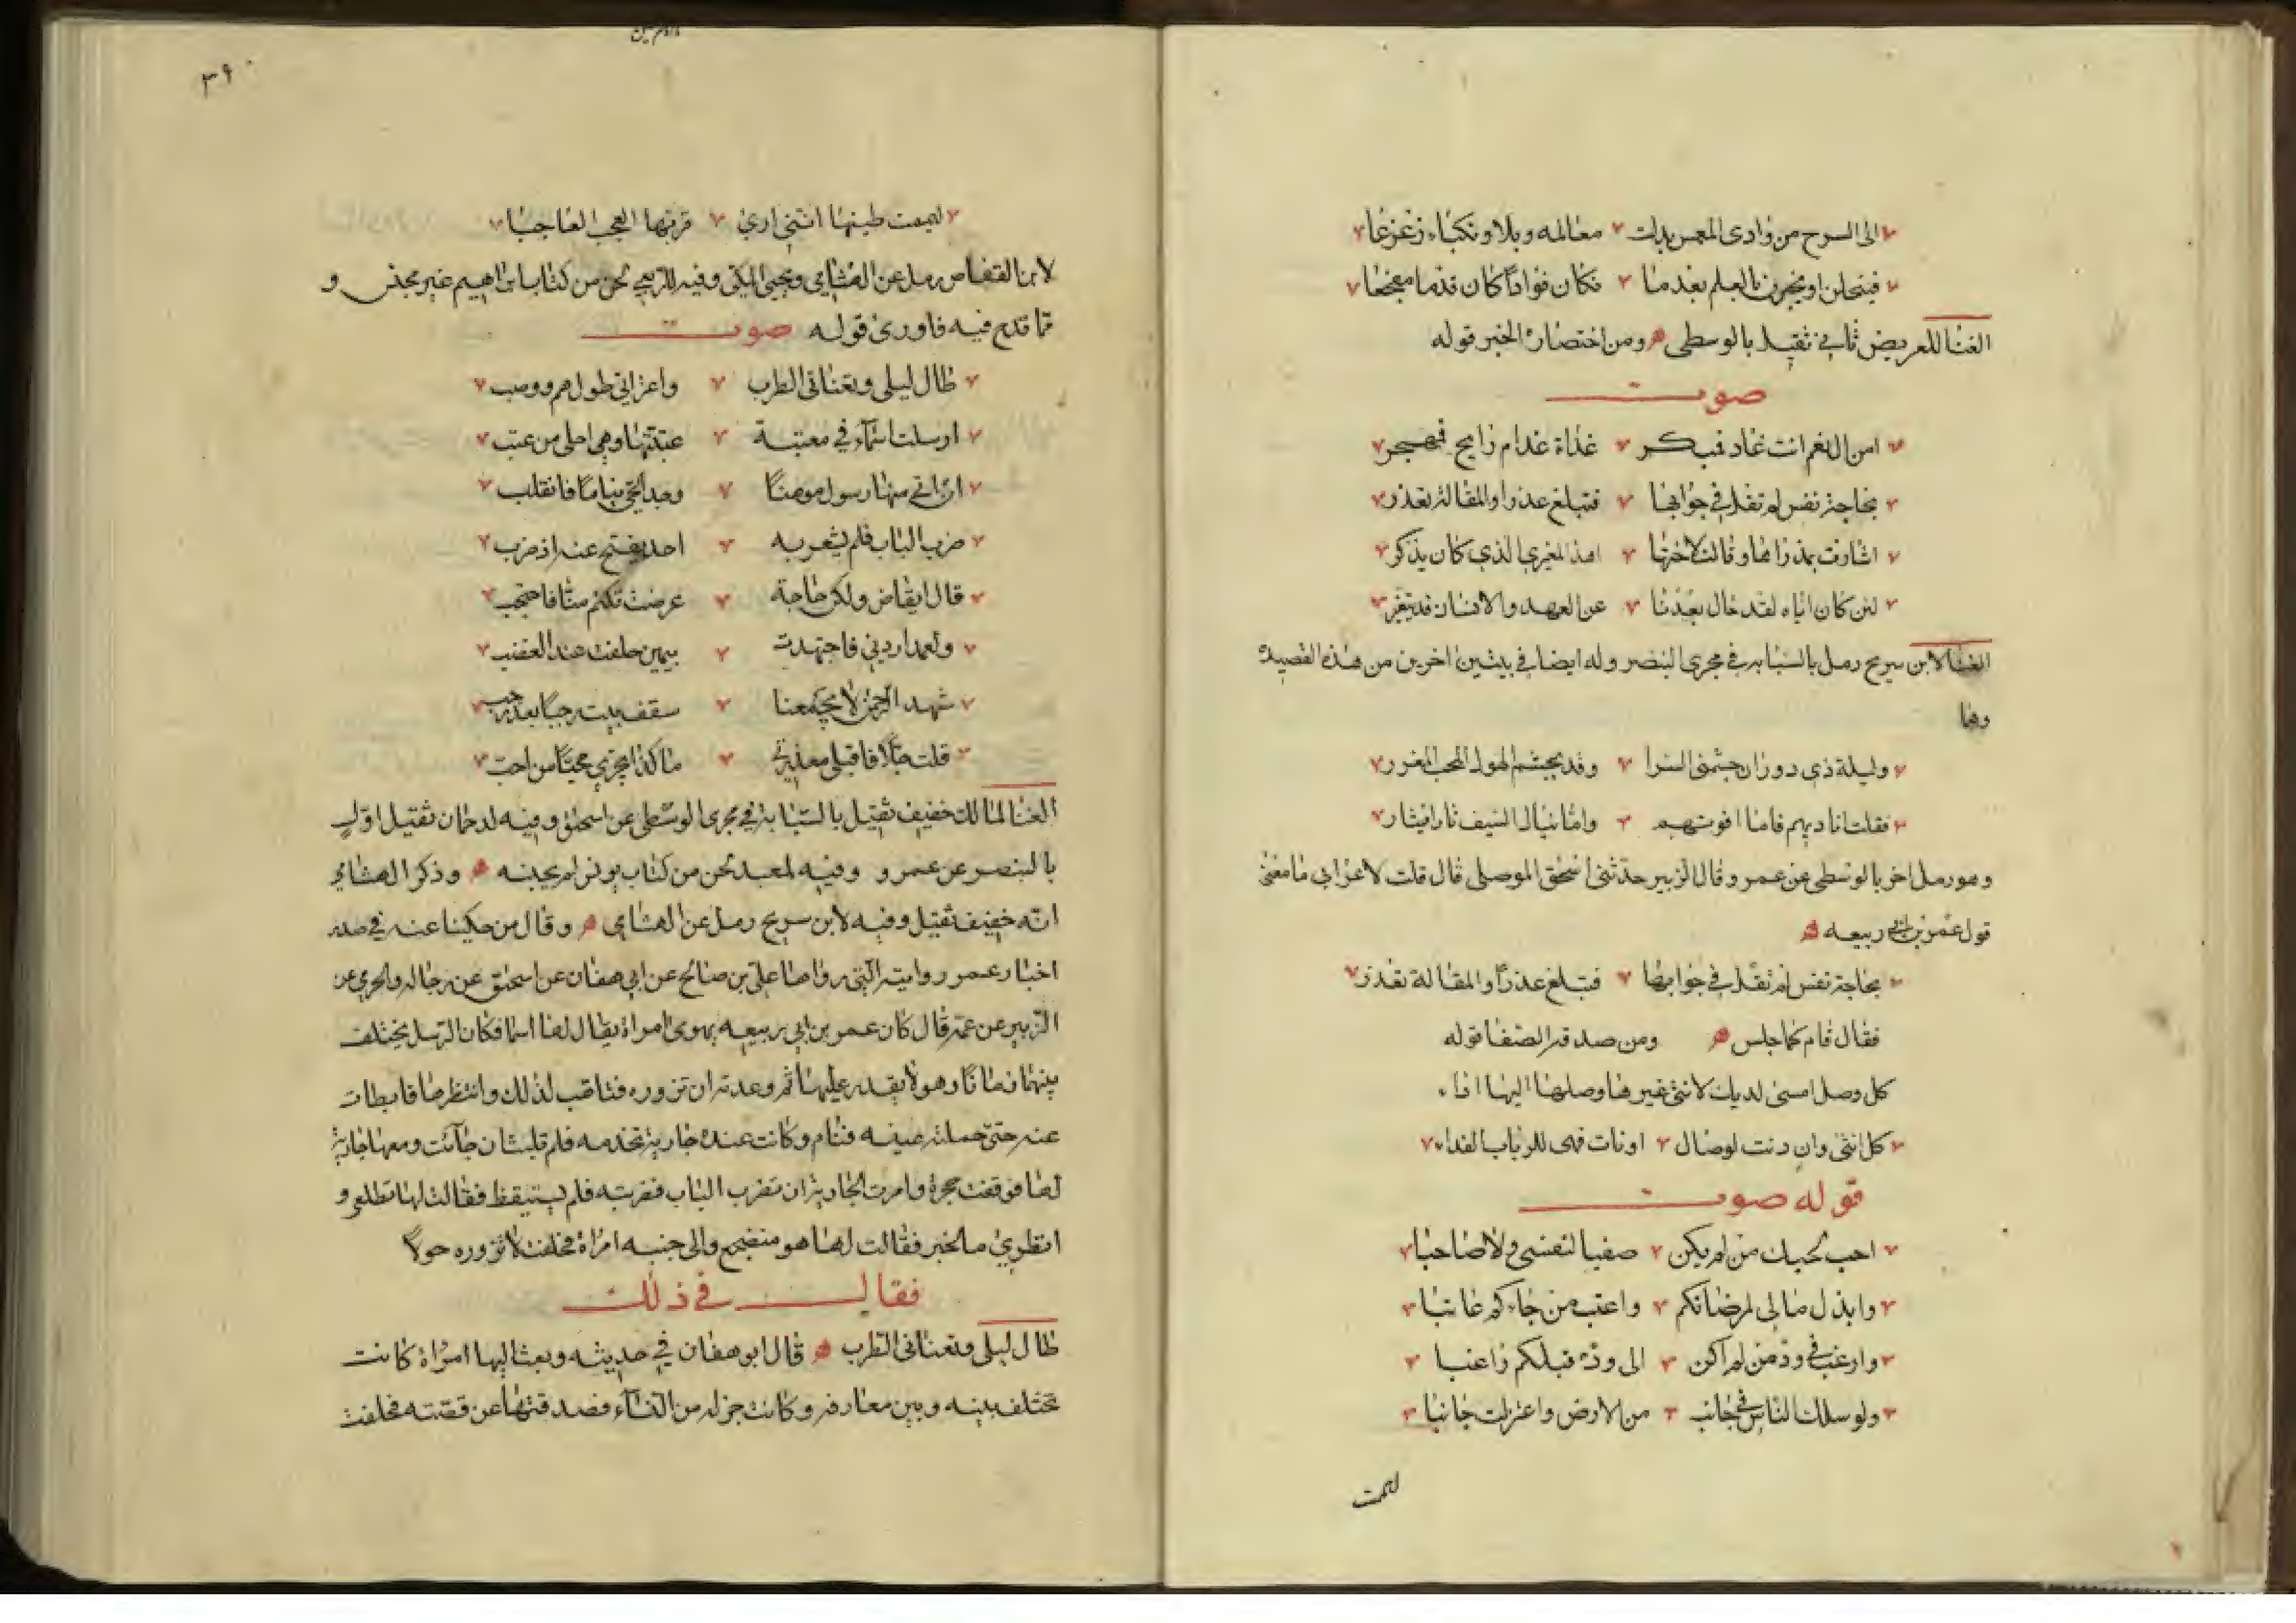 الى السرح من وادى المغمس بدلت معالمه وبلا ونكباء زعزعا
فيبخلن او يخبرن بالعلم بعدما نكان فؤادا كان قدما مفجعا
الغنا للعريض ثاني ثقيل بالوسطى ومن اختصاره الخبر قوله
صوت
امن ال نعم انت غاد فمبكر غداة غدام رايح فمهجر
بحاجة نفس لم تقل في جوابها فتبلغ عذرا والمقالة تعذر
اشارت بمدراها وقالت لاختها اهذا المغيري الذي كان يذكر
لئن كان اياه لقد حال بعدنا عن العهد والانسان قد يتغير
الغنا لابن سريح رمل بالسبابه في مجرى البنصر وله ايضا في بيتين اخرين من هذه القصيدة
وهما
وليلة ذي دوران جشمنى السرا وقد يجشم الهول المحب المغرر
فقلت اناديهم فاما افوتهم واما ينال السيف ثارا فيثار
وهو رمل اخر بالوسطى عن عمرو وقال الزبير حدثنى اسحق الموصلى قال قلت لاعرابي ما معنى
قول عمر بن ابي ربيعه
بحاجة نفس لم تقل في جوابها فتبلغ عذرا والمقالة تعذر
فقال قام كما جلس ومن صدقه الصفا قوله
كل وصل امسى لديك لانثى غيرها وصلها اليها اداء
كل انثى وان دنت لوصال او نات فهى للرباب الفداء
قوله صوت
احب لحبك من لم يكن صفيا لنفسى ولا صاحبا
وابذل مالى لمرضاتكم واعتب من جاءكم عاتبا
وارغب في ود من لم اكن الى وده قبلكم راغبا
ولو سلك الناس في جانب من الارض واعتزلت جانبا
ليممت
٣٩٠
ليممت طيتها اننى ارى قربها العجب العاجبا
لابن القفاص رمل عن الهشامي ويحيى المكى وفيه للربعي لحن من كتاب ابراهيم غير مجنس و
مما قدم فيه فاورى قوله صوت
طال ليلى وتعنانى الطرب واعترانى طول هم ووصب
ارسلت اسماء في معتبة عتبتها وهي احلى من عتب
ان اتى منها رسول موهنا وجد الحي نياما فانقلب
ضرب الباب فلم يشعر به احد يفتح عنه اذ ضرب
قال ايقاض ولكن حاجة عرضت تكتم منا فاحتجب
ولعمدا ردني فاجتهدت بيمين حلفت عند الغضب
شهد الرحمن لا يجمعنا سقف بيت رجبا بعد رجب
قلت حلا فاقبلى معذرتي ما كذا يجزي محب من احب
الغنا لمالك خفيف ثقيل بالسبابة في مجرى الوسطى عن اسحق وفيه لدحمان ثقيل اول
بالبنصر عن عمرو وفيه لمعبد لحن من كتاب يونس لم يجنسه وذكر الهشامي
انه خفيف ثقيل وفيه لابن سريح رمل عن الهشامي وقال من حكينا عنه في صدر
اخبار عمر روايته التى رواها على بن صالح عن ابي هفان عن اسحق عن رجاله والحرمي عن
الزبير عن عمه قال كان عمر بن ابي ربيعه يهوى امراة يقال لها اسما فكان الرسل يختلف
بينهما زمانا وهو لا يقدر عليها ثم وعدته ان تزوره فتاهب لذلك وانتظرها فابطات
عنه حتى حملته عينه فنام وكانت عنده جارية تخدمه فلم تلبث ان جاءت ومعها جارية
لها فوقفت حجرة وامرت الجارية ان تضرب الباب فضربته فلم يستيقظ فقالت لها تطلعي و
انظري ما الخبر فقالت لها هو مضطجع والى جنبه امراة فحلفت لا تزوره حولا
فقال في ذلك
طال ليلى وتعنانى الطرب قال ابو هفان في حديثه وبعث اليها امراة كانت
تختلف بينه وبين معارفه وكانت جزله من النساء فصدقتها عن قصته فحلفت